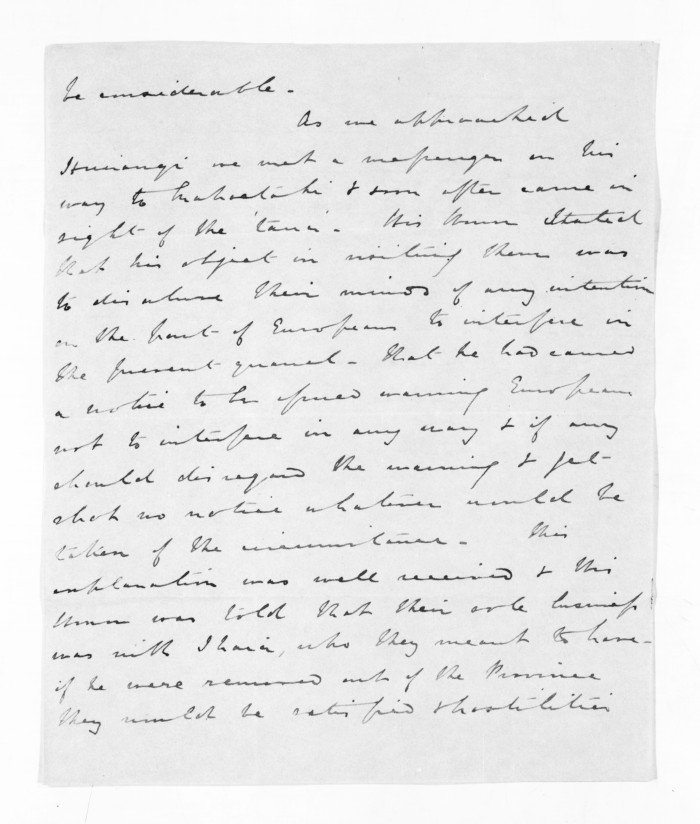 be considerable.
As we approached
Huirangi we met a messenger on his
way to Mahoetahi & soon after came in
sight of the 'taua'. His Honor stated
that his object in visiting them was
to disabuse their minds of any intention
on the part of Europeans to interfere in
the present quarrel. That he had caused
a notice to be issued warning Europeans
not to interfere in any way & if any
should disregard the warning & get
shot no notice whatever would be
taken of the circumstance. This
explanation was well received & His
Honor was told that their sole business
was with Ihaia, who they meant to have -
if he were removed out of the Province
they would be satisfied & hostilities